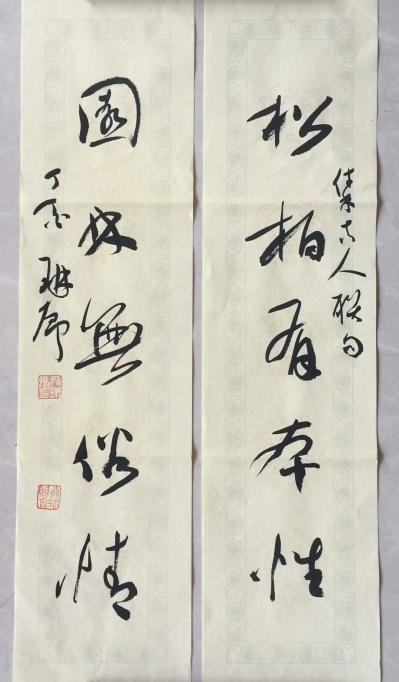 松柏有本性
集古人联句
園林無俗情
丁酉